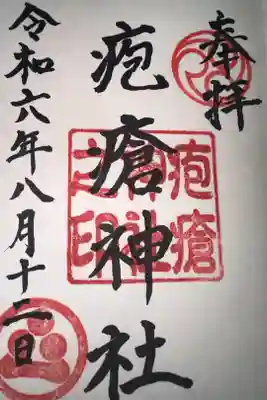 奉拝
疱瘡神社
疱瘡
神社
之印
令和六年八月十二日